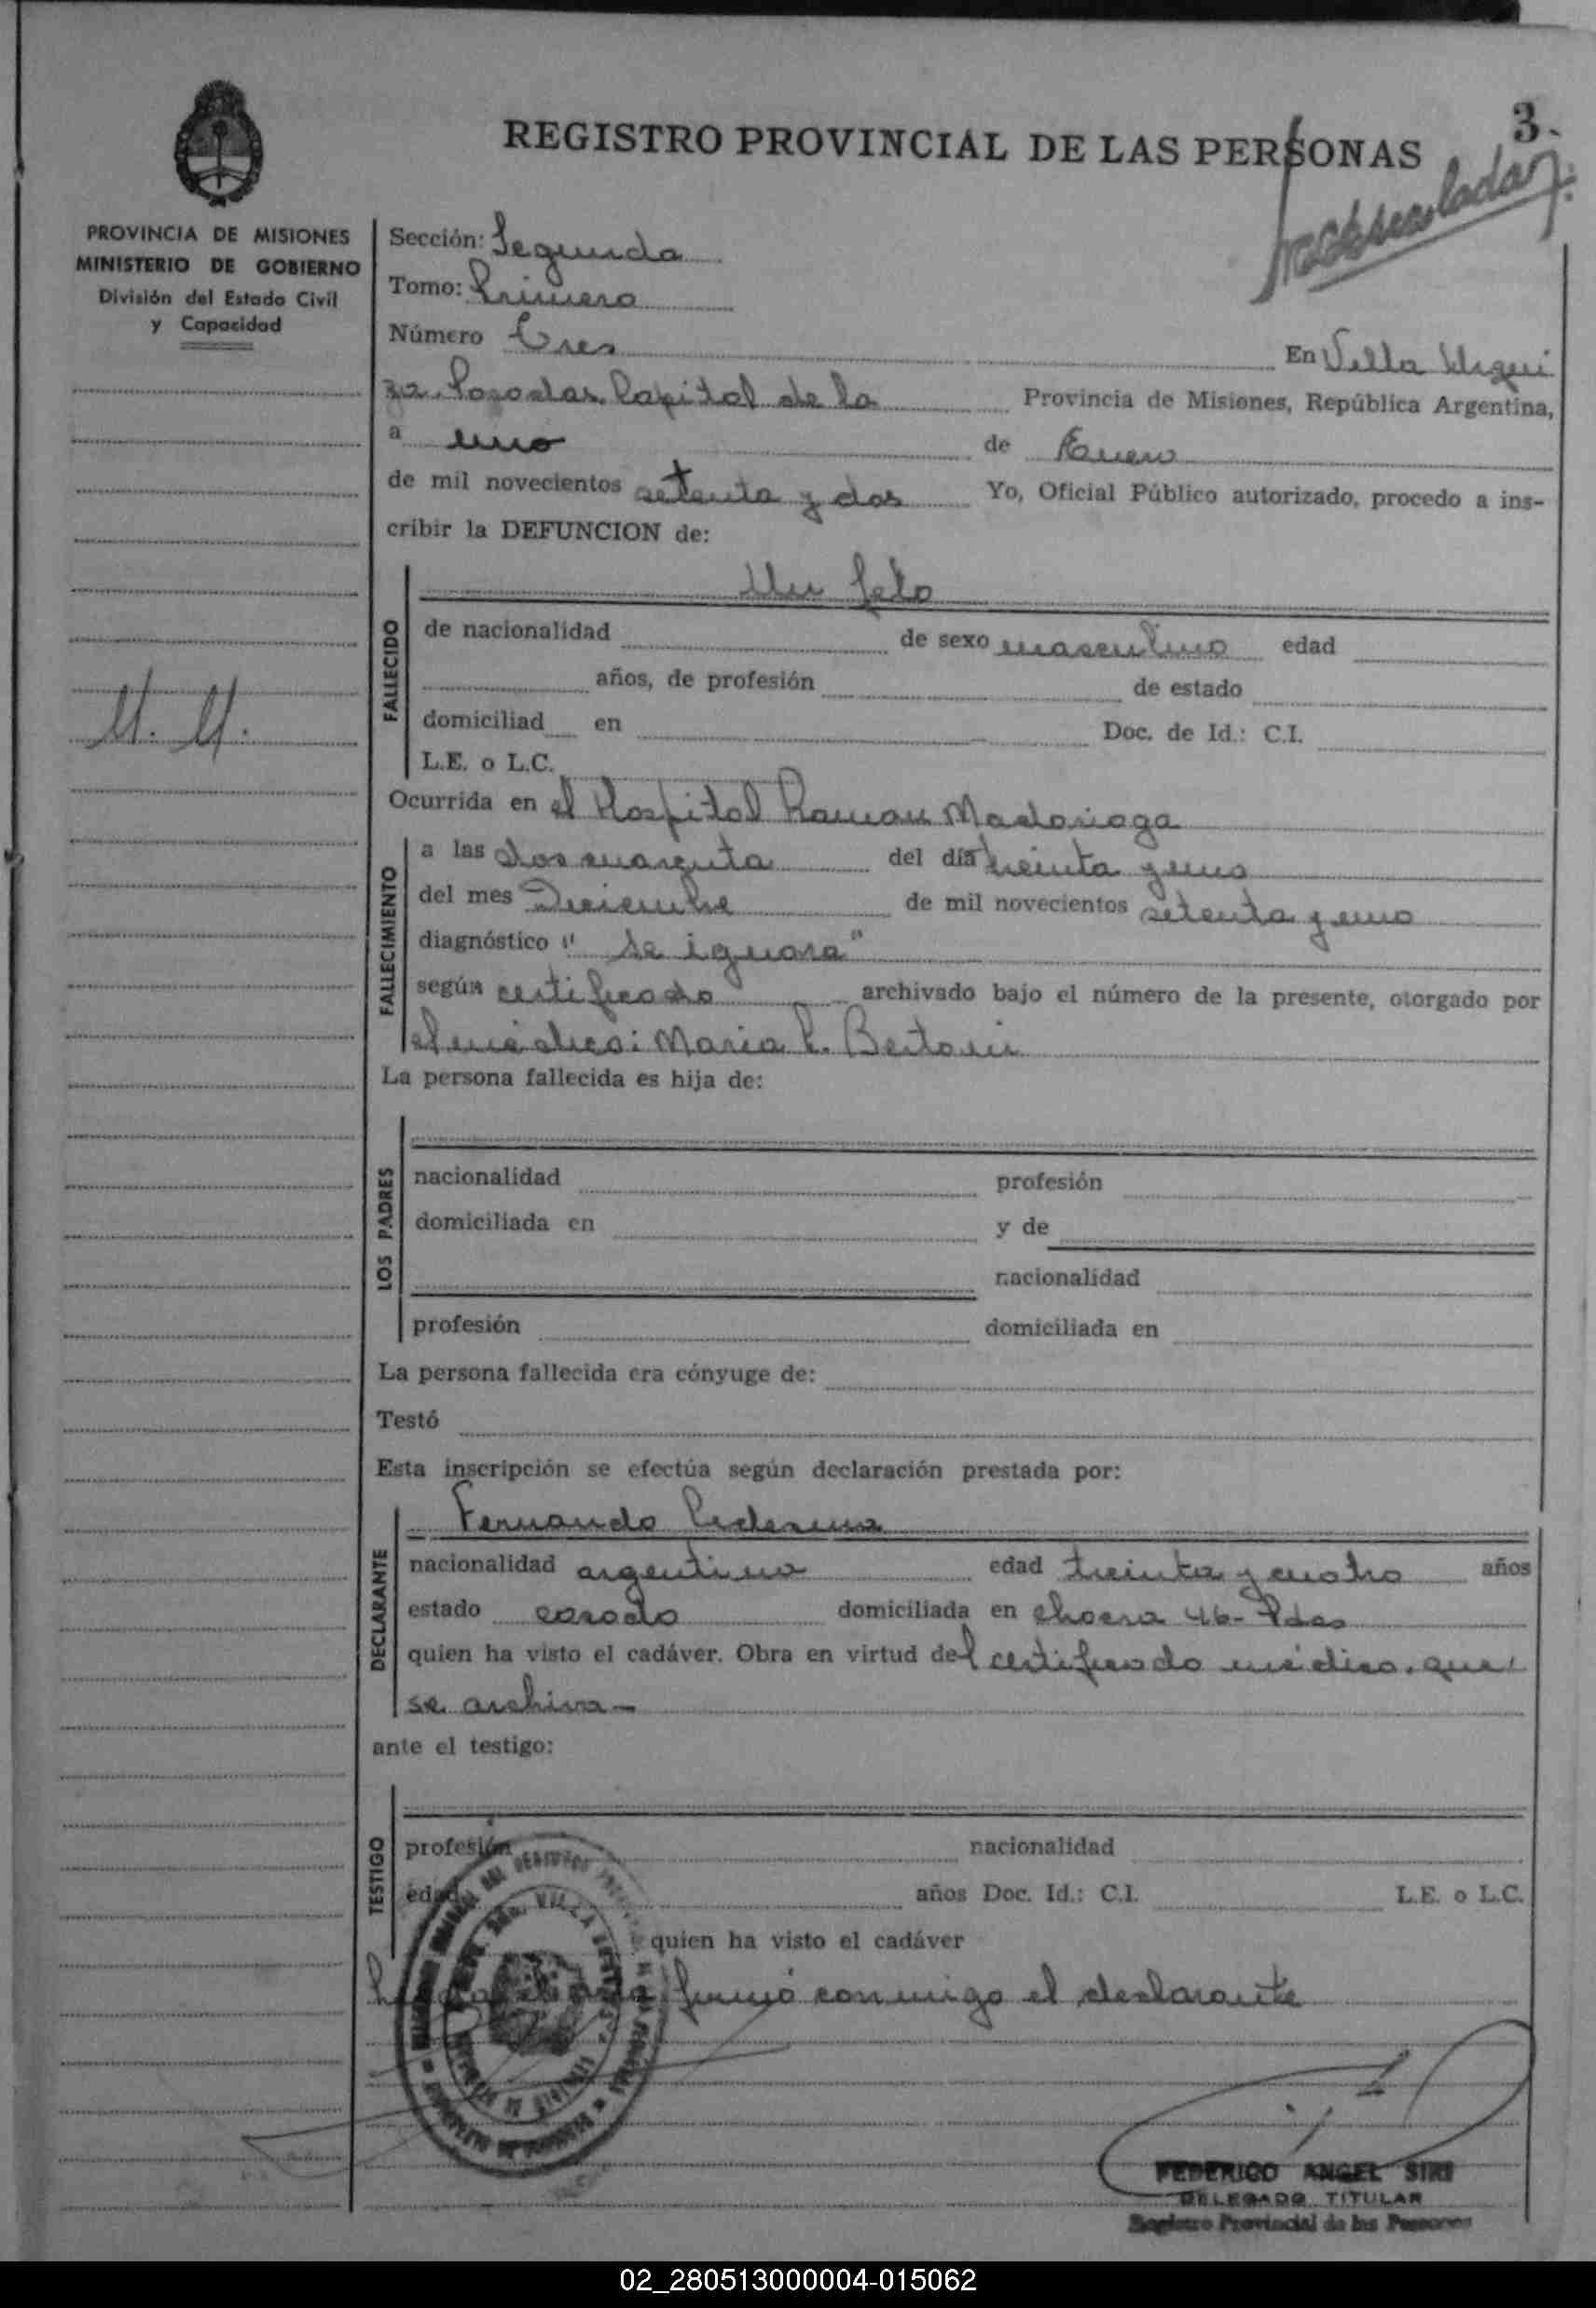 3.
REGISTRO PROVINCIAL DE LAS PERSONAS
PROVINCIA DE MISIONES
MINISTERIO DE GOBIERNO
División del Estado Civil
y Capacidad
Sección: Segunda
Tomo: Primero
Número Tres En Villa Urqui
za. Posadas Capital de la Provincia de Misiones, República Argentina,
a uno de Enero
de mil novecientos setenta y dos Yo, Oficial Público autorizado, procedo a ins-
cribir la DEFUNCION de:
N. N.
FALLECIDO
Un feto
de nacionalidad de sexo masculino edad
años, de profesión de estado
domiciliad en Doc. de Id.: C.I.
L.E. o L.C.
Ocurrida en el Hospital Ramon Madariaga
FALLECIMIENTO
a las dos cuarenta del día treinta y uno
del mes Diciembre de mil novecientos setenta y uno
diagnóstico " se ignora"
según certificado archivado bajo el número de la presente, otorgado por
el médico: Maria L. Bertoni
La persona fallecida es hija de:
LOS PADRES
nacionalidad profesión
domiciliada en y de
nacionalidad
profesión domiciliada en
La persona fallecida era cónyuge de:
Testó
Esta inscripción se efectúa según declaración prestada por:
DECLARANTE
Fernando Ledesma
nacionalidad argentina edad treinta y cuatro años
estado casado domiciliada en chacra 46- Pdas
quien ha visto el cadáver. Obra en virtud del certificado médico, que
se archiva-
ante el testigo:
TESTIGO
profesión nacionalidad
edad años Doc. Id.: C.I. L.E. o L.C.
quien ha visto el cadáver
firmó conmigo el declarante
FEDERICO ANGEL SIRI
DELEGADO TITULAR
Registro Provincial de las Personas
02_280513000004-015062